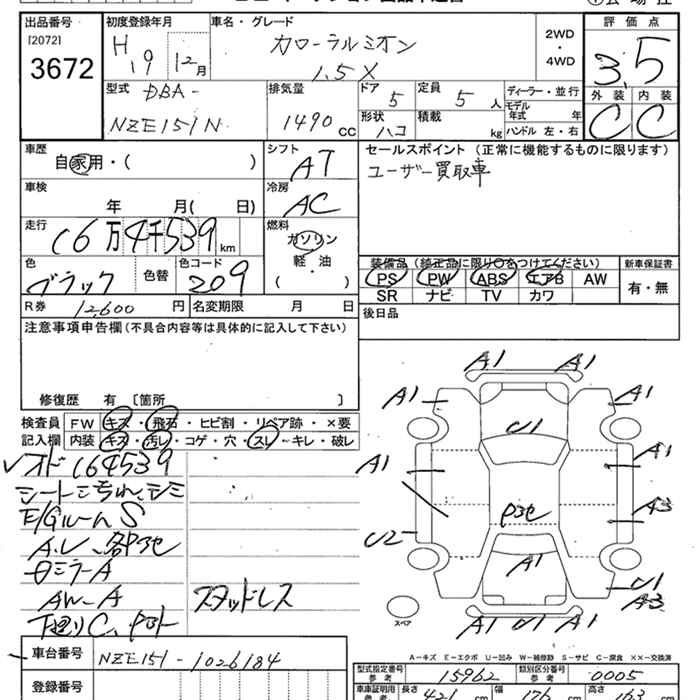 出品番号
[2072]
3672
初度登録年月
H 19 12月
車名・グレード
カローラルミオン
1.5X
2WD
・
4WD
評価点
3.5
型式
DBA-
NZE151N
排気量
1490 CC
ドア
5
定員
5 人
形状
ハコ
積載
kg
ディーラー・並行
モデル
年式 年
ハンドル 左・右
外装 内装
C C
車歴
自家用・( )
シフト
AT
セールスポイント (正常に機能するものに限ります)
ユーザー買取車
車検
年 月( 日)
冷房
AC
走行
(6万4千539 km
燃料
ガソリン
軽・油
( )
色
ブラック
色替
色コード
209
装備品 (純正品に限り○をつけてください)
PS PW ABS エアB AW
SR ナビ TV カワ
新車保証書
有・無
R券 12,600 円
名変期限 月 日
後日品
注意事項申告欄(不具合内容等は具体的に記入して下さい)
修復歴 有 〔箇所 〕
検査員
記入欄
FW キズ・飛石・ヒビ割・リペア跡・×要
内装 キズ・汚レ・コゲ・穴・スレ・キレ・破レ
オド 164539
シートこすれ、シミ
E/Gルーム S
A.L、各P3セ
ロミラーA
AW-A
下廻りC、
スタッドレス
A1 A1
A1 A1
U1
A1 A1
P3セ
A3
U2
A1
U1
A3
A1 U1 A1
スペア
A-キズ E-エクボ U-凹み W-補修跡 S-サビ C-腐食 XX-交換済
車台番号
NZE151-1026184
登録番号
型式指定番号
参考
15962
類別区分番号
参考
0005
車庫証明用
参考
長さ 421 cm
幅 176 cm
高さ 163 cm